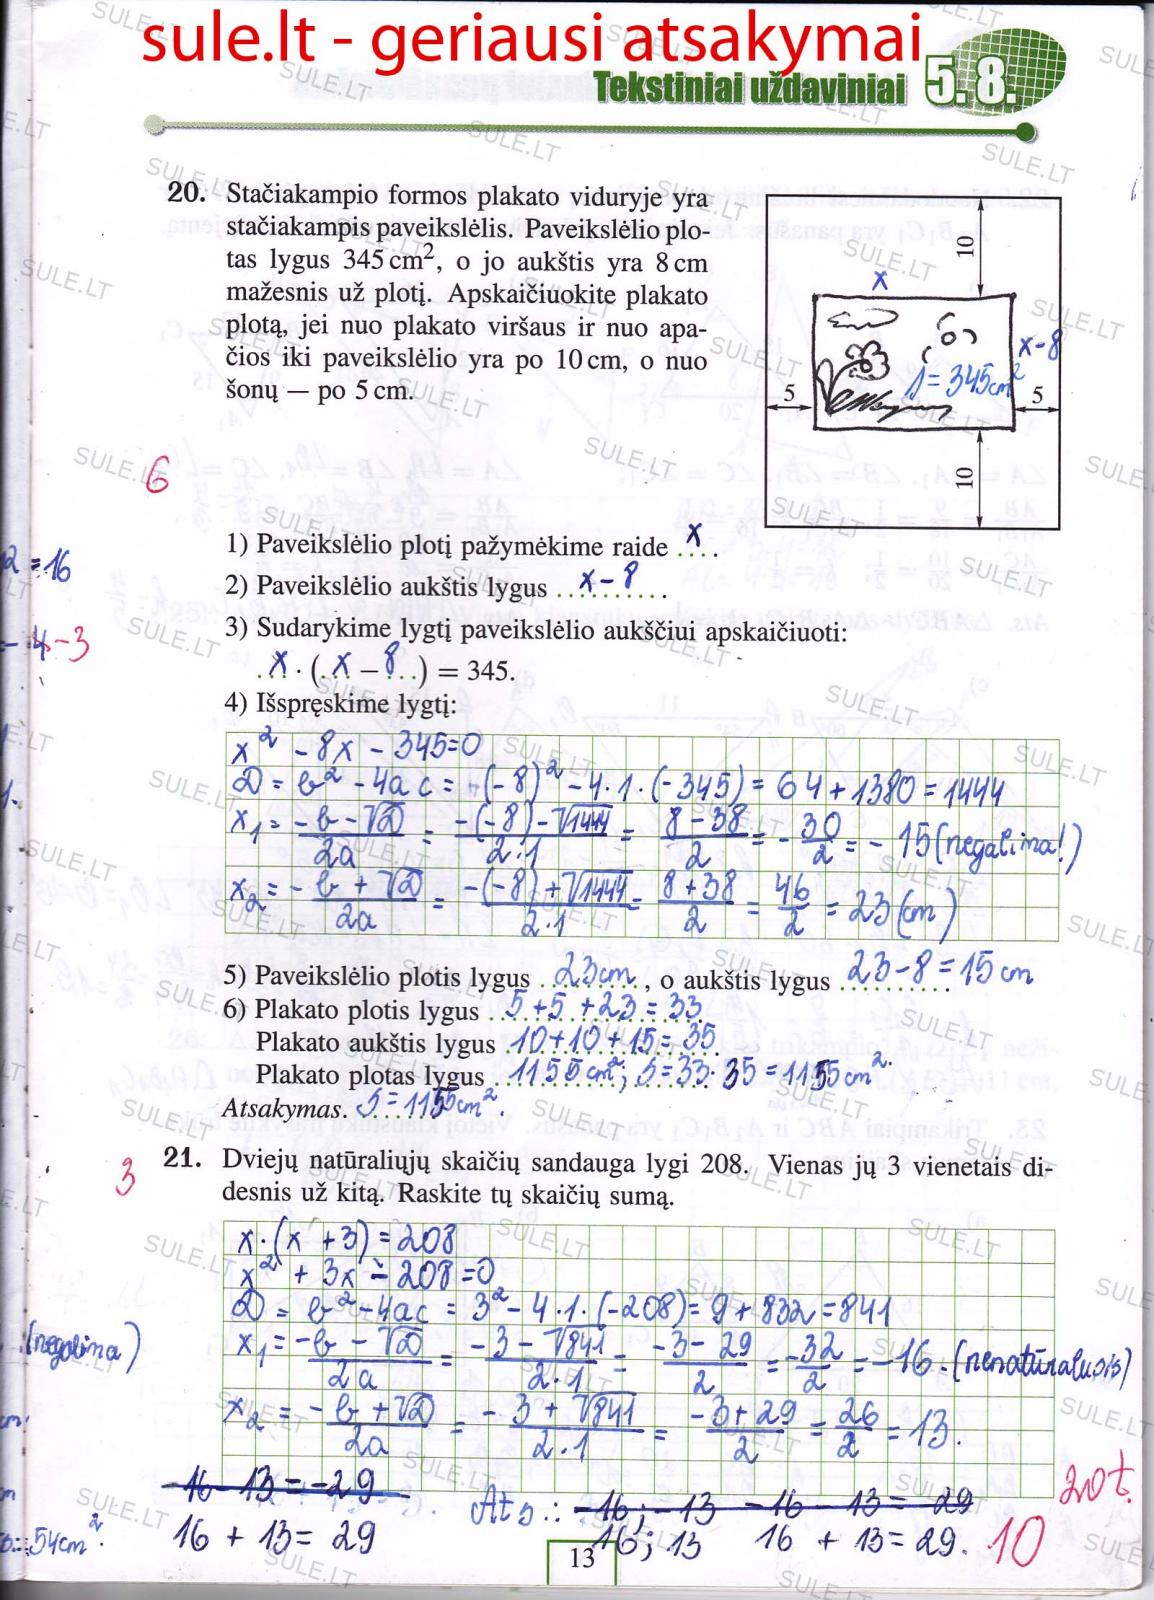 sule.lt - geriausi atsakymai
Tekstiniai uždaviniai 5.8.
20. Stačiakampio formos plakato viduryje yra
stačiakampis paveikslėlis. Paveikslėlio plo-
tas lygus 345 cm², o jo aukštis yra 8 cm
mažesnis už plotį. Apskaičiuokite plakato
plotą, jei nuo plakato viršaus ir nuo apa-
čios iki paveikslėlio yra po 10 cm, o nuo
šonų — po 5 cm.
10
x
x-8
S = 345cm²
5
5
10
6
2 = 16
- 4-3
1) Paveikslėlio plotį pažymėkime raide x.
2) Paveikslėlio aukštis lygus x-8.
3) Sudarykime lygtį paveikslėlio aukščiui apskaičiuoti:
x · (x - 8) = 345.
4) Išspręskime lygtį:
x² - 8x - 345=0
D = b² - 4ac = (-8)² - 4·1·(-345) = 64+1380=1444
x₁ = -b-√D/2a = -(-8)-√1444/2·1 = 8-38/2 = -30/2 = -15 (negalima!)
x₂ = -b+√D/2a = -(-8)+√1444/2·1 = 8+38/2 = 46/2 = 23 (cm)
5) Paveikslėlio plotis lygus 23cm, o aukštis lygus 23-8=15cm
6) Plakato plotis lygus 5+5+23=33.
Plakato aukštis lygus 10+10+15=35.
Plakato plotas lygus 1155cm²; S=33·35=1155cm².
Atsakymas. S=1155cm².
3
21. Dviejų natūraliųjų skaičių sandauga lygi 208. Vienas jų 3 vienetais di-
desnis už kitą. Raskite tų skaičių sumą.
x·(x+3)=208
x² + 3x - 208=0
D = b²-4ac = 3²-4·1·(-208)=9+832=841
(negalima)
x₁ = -b-√D/2a = -3-√841/2·1 = -3-29/2 = -32/2 = -16. (nenatūralusis)
x₂ = -b+√D/2a = -3+√841/2·1 = -3+29/2 = 26/2 = 13.
-16-13=-29
Ats.: -16; -13 -16-13=-29
16 + 13 = 29
16; 13 16 + 13=29.
54cm².
20t.
10
13
SULE.LT